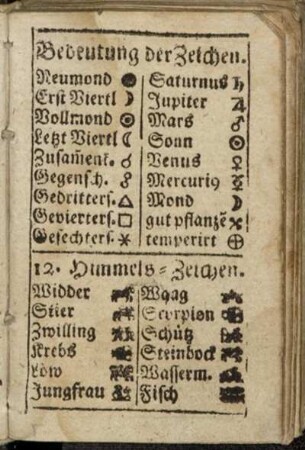 Bedeutung der Zeichen.
Neumond ● Saturnus ♄
Erst Viertl ☽ Jupiter ♃
Vollmond ☉ Mars ♂
Letzt Viertl ☾ Sonn ☉
Zusam̃enk. ☌ Venus ♀
Gegensch. ☍ Mercuri9 ☿
Gedritters. △ Mond ☽
Gevierters. □ gut pflanzẽ
Gesechters. ⚹ temperirt ⊕
12. Himmels⸗Zeichen.
Widder Waag
Stier Scorpion
Zwilling Schütz
Krebs Steinbock
Löw Wasserm.
Jungfrau Fisch